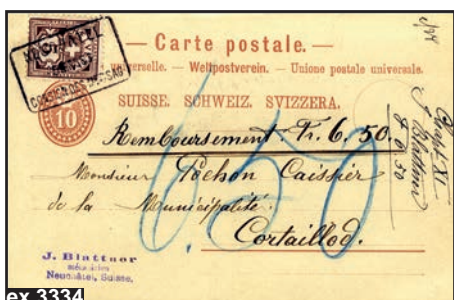 — Carte postale. —
universelle. — Weltpostverein. — Unione postale universale.
SUISSE. SCHWEIZ. SVIZZERA.
10
Remboursement Fr. 6.50.
6.50
Monsieur Pochon Caissier
de la Municipalité.
Cortaillod.
J. Blattner
6.50
J. Blattner
Neuchâtel, Suisse.
ex 3334